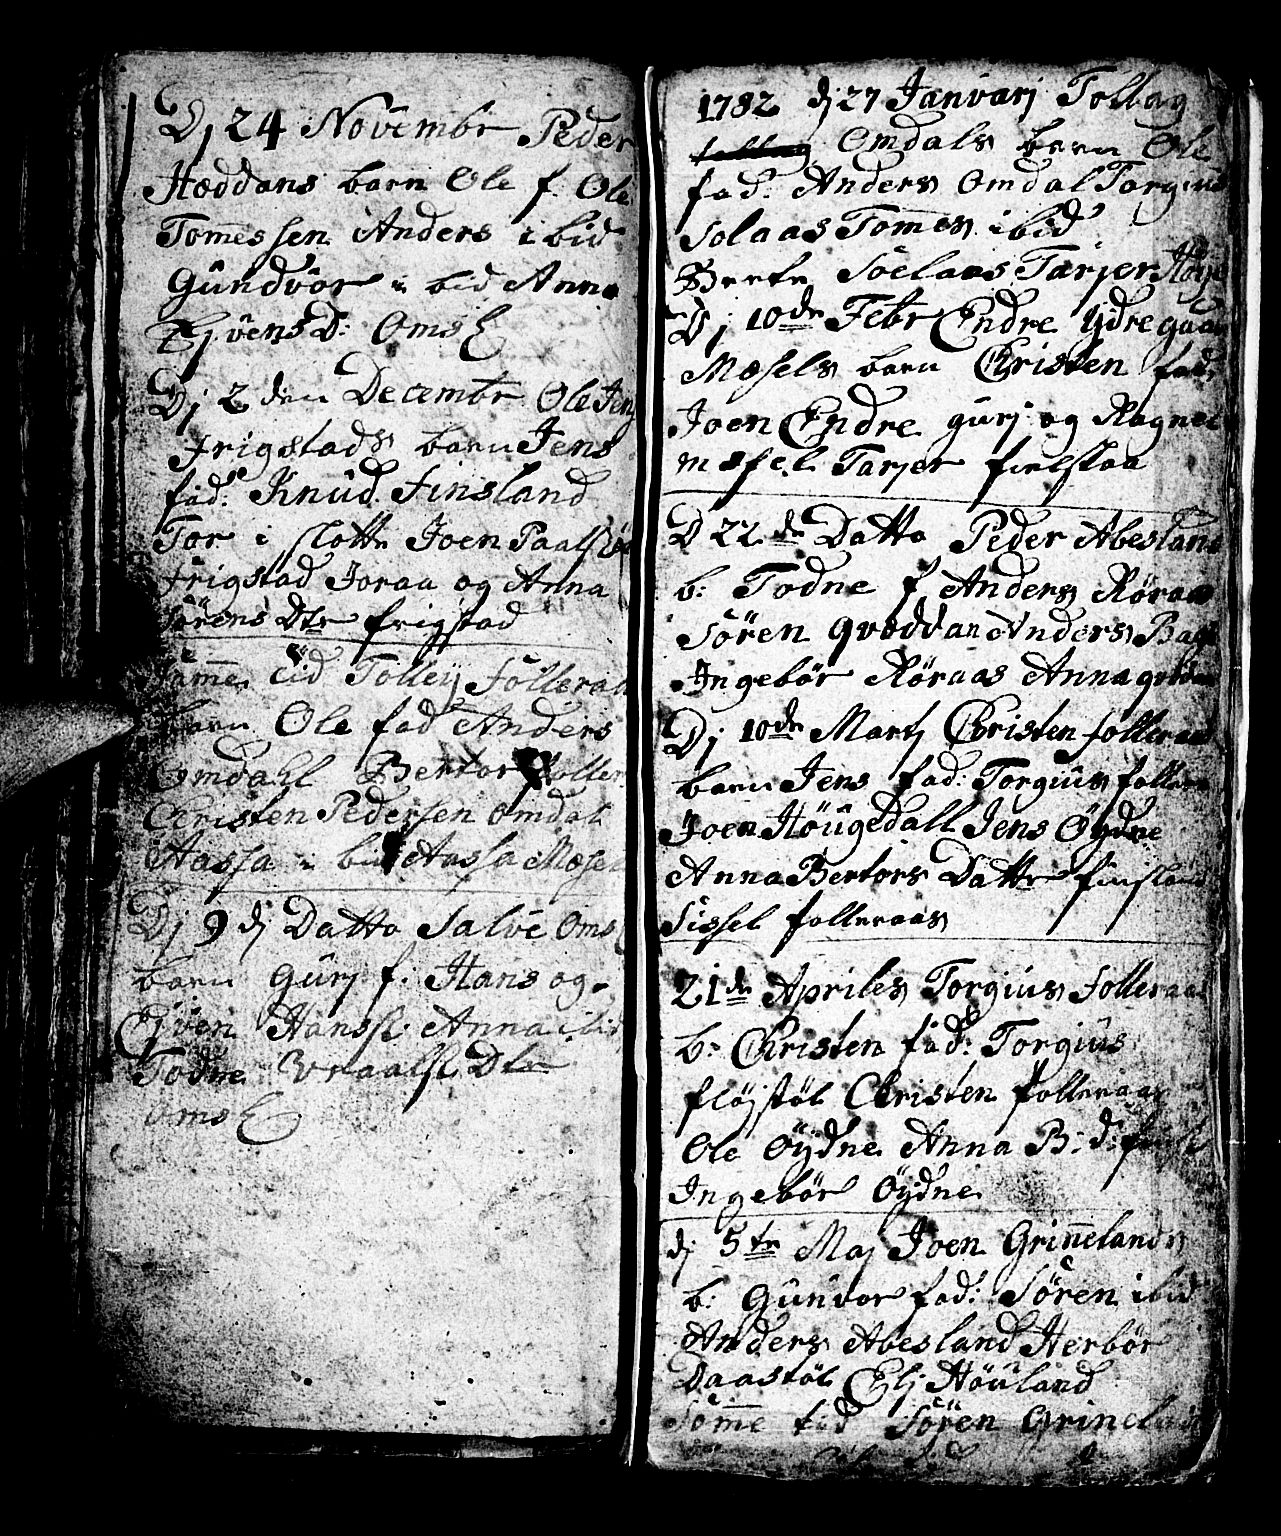 Dj 24 Novembr Peder
Hæddans barn Ole f. Ole
Tomessen Anders ibid
Gundvör i bid Anna
Ejvens D: OmsE
Dj 2 den Decembr Ole Jens
frigstads barn Jens
fad: Knud Finsland
Tor i slotte Joen Paals
frigstad Joraa og Anna
Sörens Dtr frigstad
Samme tid Tollej folleraas
barn Ole fad Anders
Omdahl Bertor foller
Christen Pedersen Omdal
Aassa i bid Aassa Mosel
Dj 9 dj Datto Salve Oms
barn Gurj f: Hans og
Ejven Hanss: Anna ibid
Todne Vraals: Dtr
OmsE
1782 dj 27 Januarj Tollag
Omdals barn Ole
fad: Anders Omdal Torgius
Solaas Tomes ibid
Berte Soelaas Tarjer Höye
Dj 10de Febr Endre ydregaar
Mæsels barn Christen fad:
Joen Endre gurj og Ragnel
mosel Tarjer fielstaa
D 22 de Datto Peder Abesland
b: Todne f Anders Röraas
Sören qvoddan Anders
Ingebör Röraas Anna
Dj 10de Martj Christen folleraas
barn Jens fad: Torgius folleraas
Joen Höugedall Jens Öydne
Anna Bertors Datter finsland
Sissel folleraas
21de Apriles Torgius folleraas
b: Christen fad: Torgius
flöjstöl Christen folleraas
Ole Öydne Anna B: d:
Ingebör Öydne
dj 5te Maj Joen Grinnelands
b: Gunvor fad: Sören ibid
Anders Abesland Herbör
Daastöl Elj Höuland
Somme tid Sören Grineland